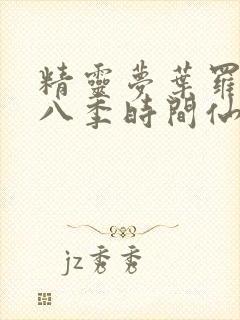 精靈夢葉羅
八季時間仙
jz秀秀